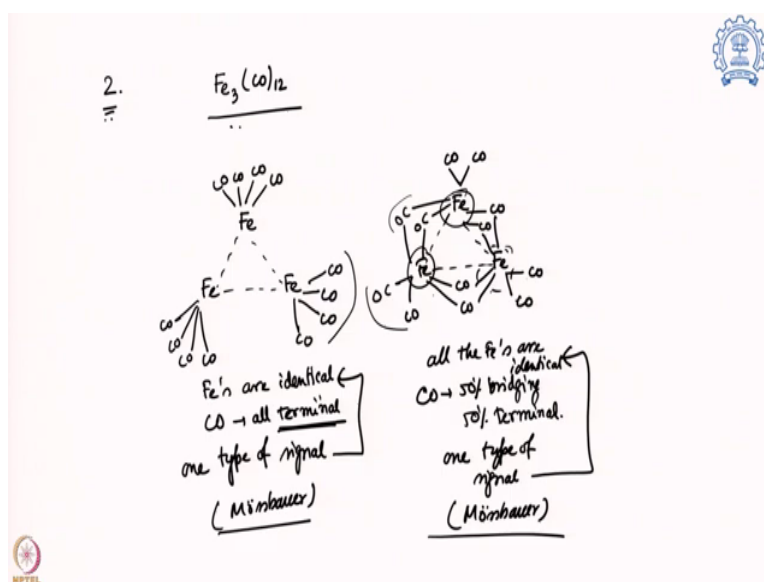 2.
Fe3(CO)12
CO CO CO CO
Fe
Fe
Fe
CO
CO
CO
CO
CO
CO
CO CO
Fe's are identical
CO → all terminal
one type of signal
(Mössbauer)
CO CO
Fe
OC
OC
CO
CO
Fe
Fe
CO
CO
CO
CO
OC
CO
all the Fe's are
identical
CO → 50% bridging
50% Terminal.
one type of
signal
(Mössbauer)
NPTEL